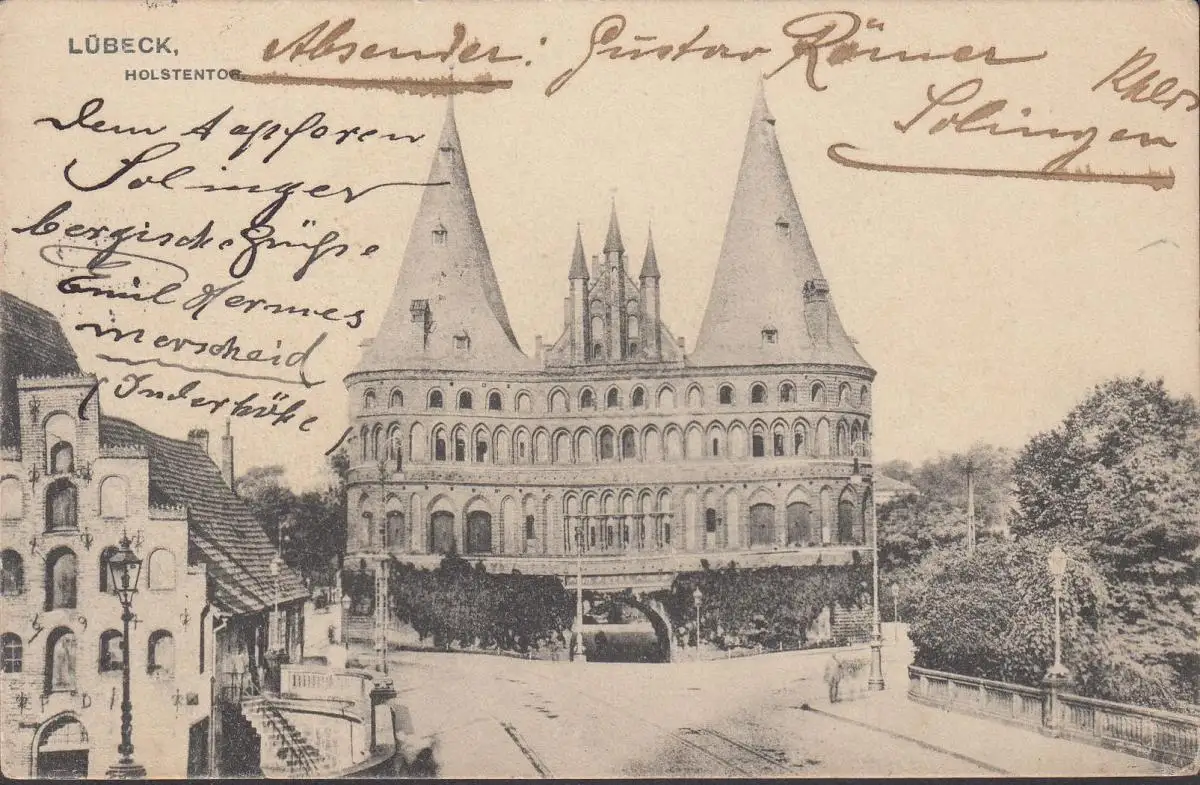 LÜBECK,
HOLSTENTOR.
Absender: Gustav Römer
Solingen
Dem Tapferen
Solinger
bergische Grüße
Emil Hermes
Merscheid